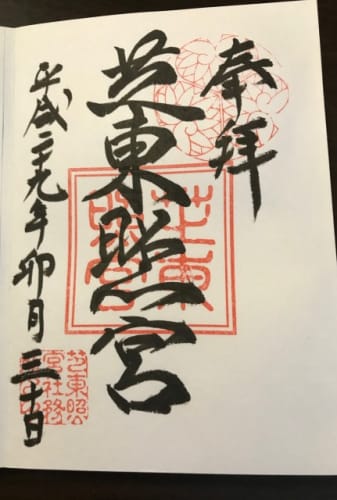 奉拝
芝東照宮
平成二十九年卯月三十日
芝東照宮
芝東照宮社務所之印